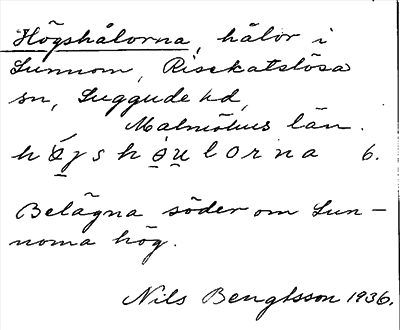 Högshålorna, hålor i
Sunnom, Risekatslösa
sn, Luggude hd,
Malmöhus län.
högshålorna 6.
Belägna söder om Sun-
noma hög.
Nils Bengtsson 1936.